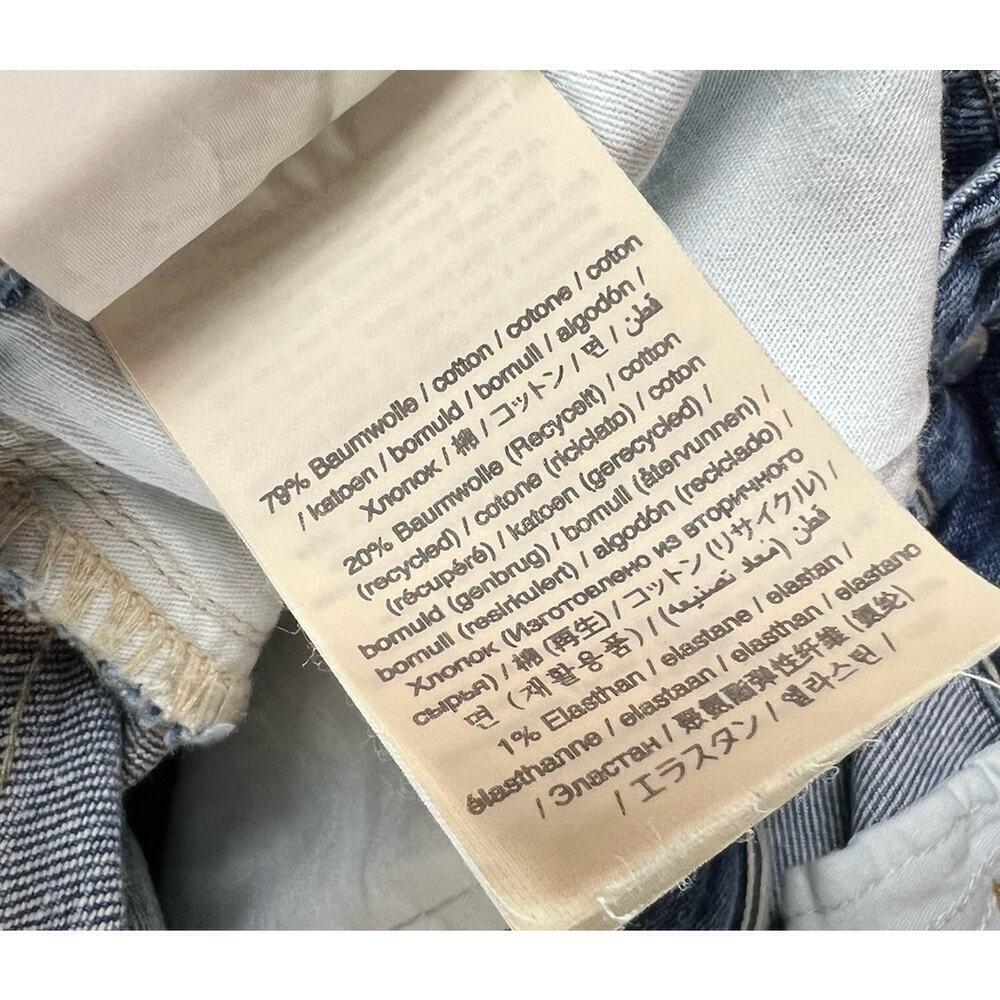 79% Baumwolle / cotton / cotone / coton
/ katoen / bomuld / bomull / algodón /
Хлопок / 棉 / コットン / 면 / قطن
20% Baumwolle (Recycelt) / cotton
(recycled) / cotone (riciclato) / coton
(récupéré) / katoen (gerecycled) /
bomuld (genbrug) / bomull (återvunnen) /
bomull (resirkulert) / algodón (reciclado) /
Хлопок (Изготовлено из вторичного
сырья) / 棉 (再生) / コットン (リサイクル) /
면 (재활용품) / (معاد تصنيعه) قطن
1% Elasthan / elastane / elastan /
élasthanne / elastaan / elasthan / elastano
/ Эластан / 聚氨酯弹性纤维 (氨纶)
/ エラスタン / 엘라스틴 /